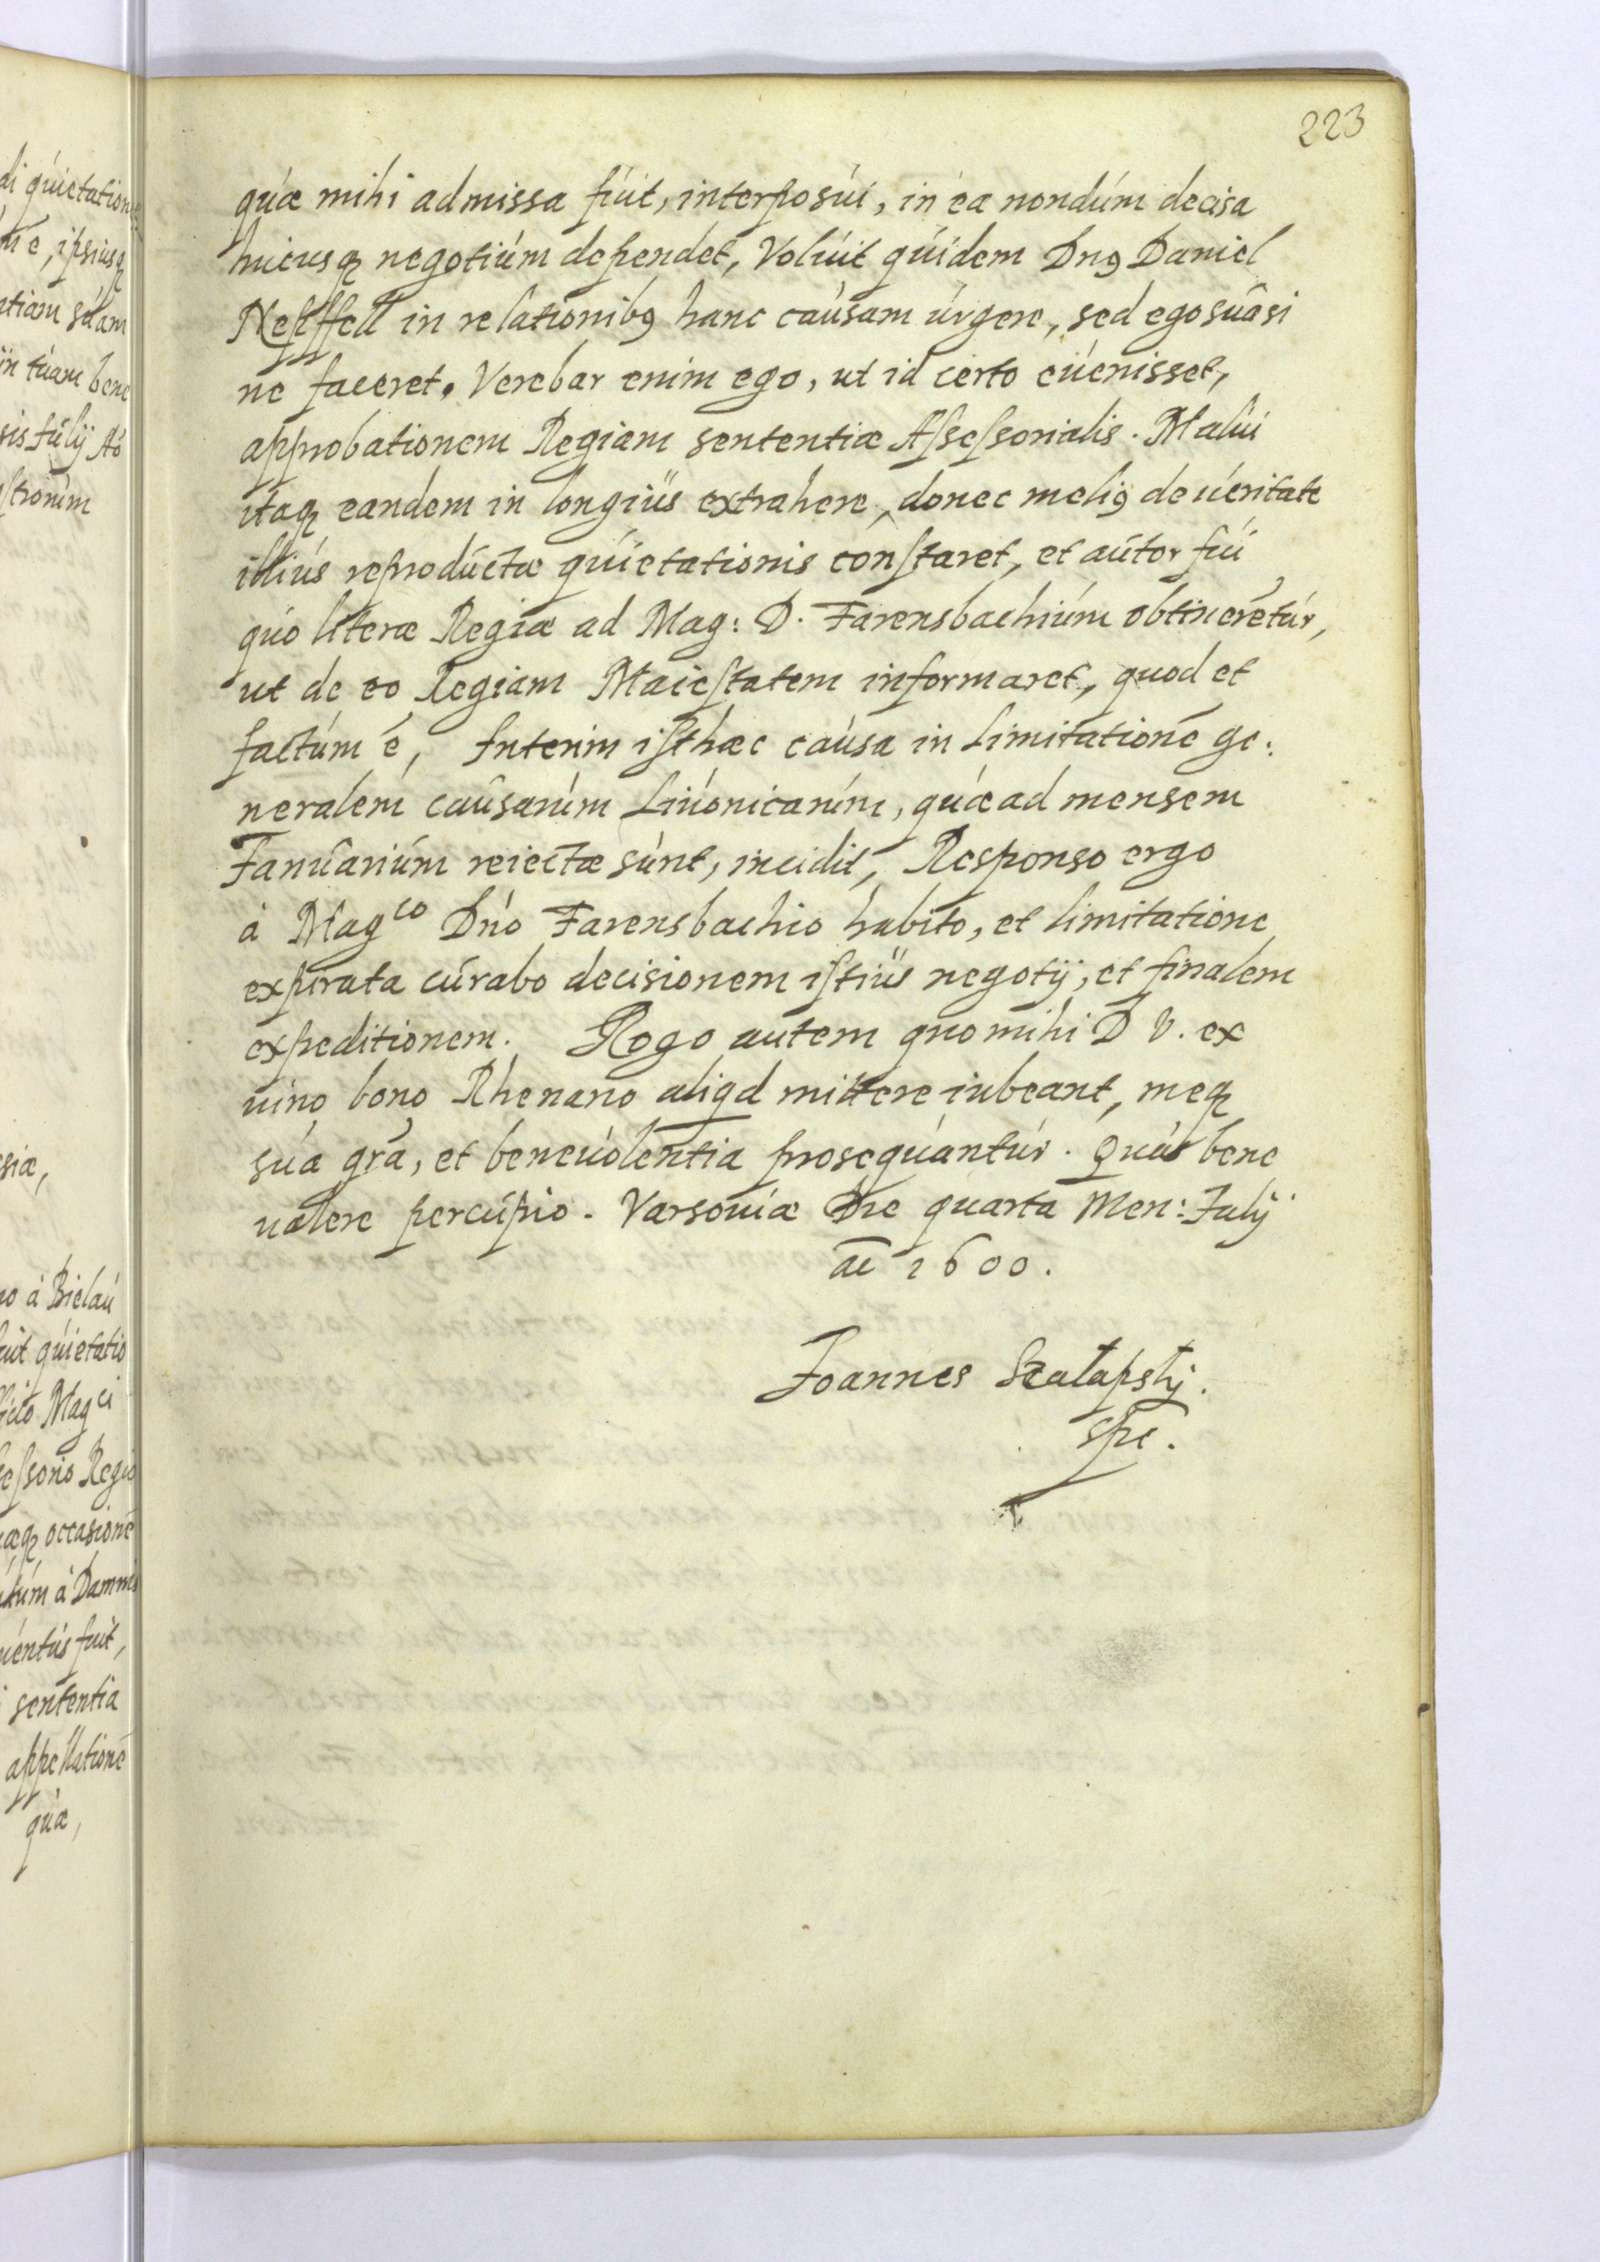 223
quæ mihi admissa fuit, interposui, in ea nondum decisa
hucusq; negotium dependet, Voluit quidem Dn9 Daniel
in relationib9 hanc causam urgere, sed ego suasi
ne faceret. Verebar enim ego, ut id certo euenisset,
approbationem Regiam sententiæ Aſseſsorialis. Malui
itaq; eandem in longius extrahere, donec meli9 de ueritate
illius reproductæ quietationis conſtaret, et autor fui
quo literæ Regiæ ad Mag: D. Farensbachium obtinerētur,
ut de eo Regiam Maieſtatem informaret, quod et
factum ē, Interim iſthæc causa in Limitationē ge:
neralem causarum Liuonicarum, quæ ad mensem
Januarium reiectæ sunt, incidit, Responso ergo
à Magco Dn̄o Farensbachio habito, et limitatione
expirata curabo decisionem iſtius negotij, et finalem
expeditionem. Rogo autem quo mihi D V. ex
uino bono Rhenano aliqd mittere iubeant, meq;
sua gr̄a, et beneuolentia prosequantur. Quas bene
ualere percupio. Varsouiæ Die quarta Men: Julij
1600.
Joannes
di quietation
ē, ipsiusq;
ntiam suam
in tuam bene
sis Julij Ao
ſtronum
siæ,
no à Bielau
uit quietatio
Magci
ſeſsorio Regio
æq; occasionē
tum à Damnis
uentus fuit,
sententia
appellationē
quæ,